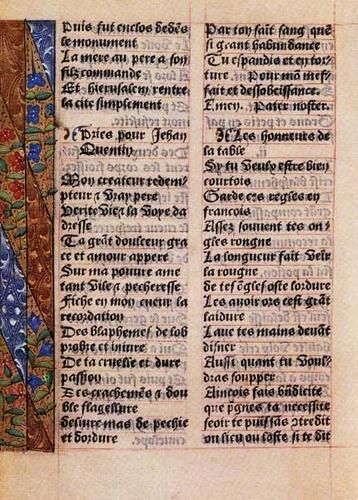 Puis fut enclos dedẽs
le monument
La mere au pere a son
filz commande
Et hierusalem rentre
la cite simplement
Pries pour Jehan
Quentin
Mon createur redem-
pteur & vray pere
Verite vie & la voye da
dresse
Ta grãt doulceur gra
ce et amour appere
Sur ma pouure ame
tant vile & pecheresse
Fiche en mon cueur la
recordation
Des blasphemes de lob
probre et iniure
De ta cruelle et dure
passion
Des crachemẽs & dou
ble flagellure
deliure mas de pechie
et dordure
Par toy fait sang que
si grant habundance
Tu espandis et en tor-
ture. Pour mõ mef-
fait et desobeissance.
Amen. Pater noster.
Les honneurs de
la table ii
Sy tu veulx estre bien
courtois
Garde ces regles en
francois
Assez souuent tes on-
gles rongne
La longueur fait venir
la rougne.
de tes õgles oste lordure
Les auoir ors cest grãt
laidure
Laue tes mains deuãt
disner
Aussi quant tu voul-
dras soupper
Aincois fais bñdicite
que prgnes ta necessite
seoir te puis sãs cõtredit
ou lieu ou loste si te dit